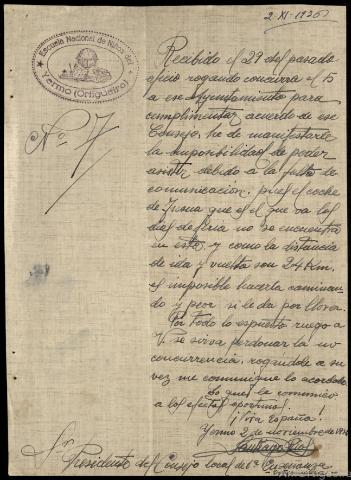 2-XI-1936
Escuela Nacional de Niños del
Yermo (Ortigueira)
Nº 7
Recibido el 29 del pasado
oficio rogando concurra el 15
a ese Ayuntamiento para
cumplimentar acuerdo de ese
Consejo, he de manifestarle
la imposibilidad de poder
asistir debido a la falta de
comunicación, pues el coche
de que es el que va los
días de feria no se encuentra
en esta, y como la distancia
de ida y vuelta son 24 Km.
es imposible hacerla caminan-
do y peor si le da por llover.
Por todo lo expuesto ruego a
V. se sirva perdonar la no
concurrencia, rogándole a su
vez me comunique lo acordado.
Lo que le comunico
a los efectos oportunos.
¡Viva España!
Yermo 2 de noviembre de 1936
Santiago
Sr. Presidente del Consejo local de 1ª Enseñanza